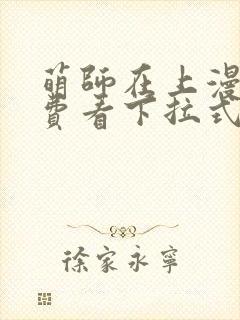 萌師在上漫
費看下拉式
徐家永寧